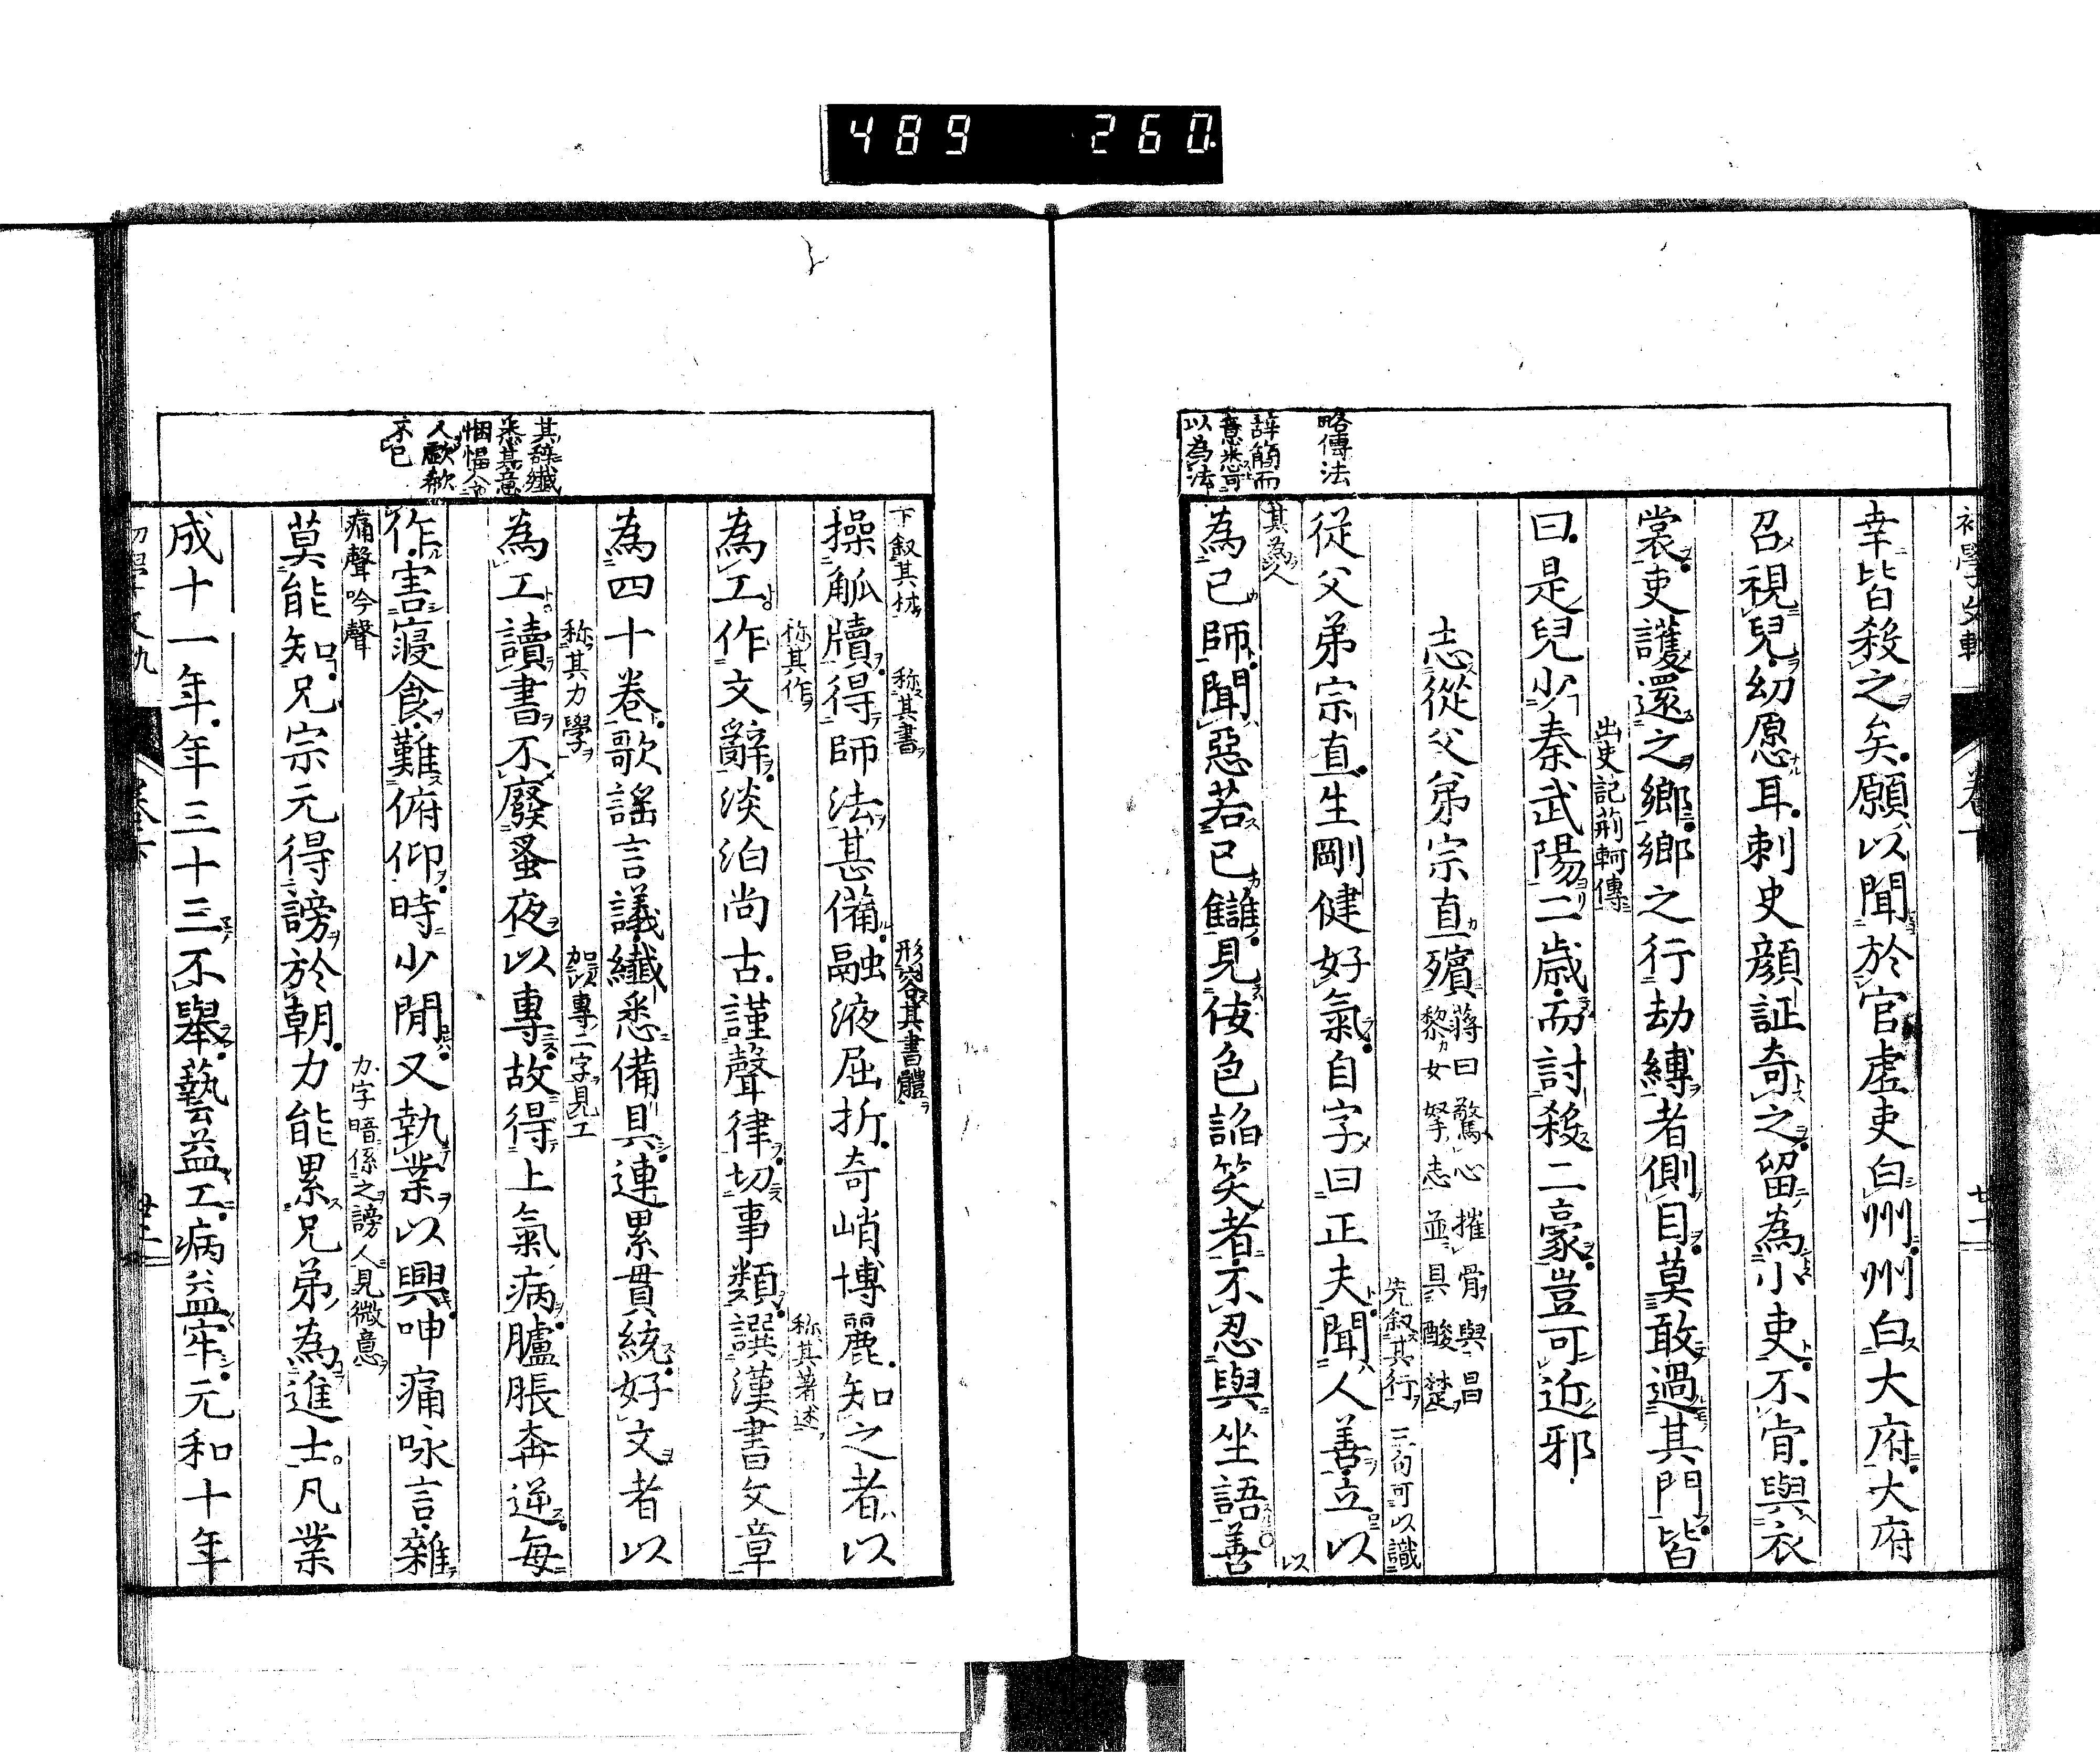 489 260
初學文軌
卷下
廿一
幸皆殺之矣願以聞於官虛吏白州州白大府大府
召視兒幼愿耳刺史顔証奇之留為小吏不肯與衣
裳吏護還之鄉鄉之行劫縛者側目莫敢過其門皆
出史記荊軻傳
曰是兒少秦武陽二歲而討殺二豪豈可近邪
志從父弟宗直殯
蔣曰驚心摧骨與昌
黎女挐志並具酸楚
略傳法
先叙其行 三句可以識
從父弟宗直生剛健好氣自字曰正夫聞人善立以
其為人
以
辞簡而
意悉可
以為法
為已師聞惡若已讎見佞色諂笑者不忍與坐語善
下叙其材 称其書 形容其書體
操觚牘得師法甚備融液屈折奇峭博麗知之者以
称其作 称其著述
為工作文辭淡泊尚古謹聲律切事類譔漢書文章
為四十卷歌謠言議纖悉備具連累貫統好文者以
称其力學 加以專二字見工
其辞纖
悉其意
悃愊令
人歔欷
不已
為工讀書不廢蚤夜以專故得上氣病臚脹奔逆每
作害寢食難俯仰時少閒又執業以興呻痛咏言雜
痛聲吟聲 力字暗係之謗人見微意
莫能知兄宗元得謗於朝力能累兄弟為進士凡業
成十一年年三十三不舉藝益工病益牢元和十年
初學文軌
卷下
廿二